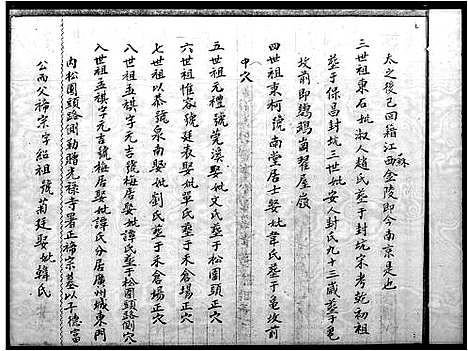 太之後已回籍江西蘇金陵即今南京是也
三世祖東石妣淑人趙氏葬于封坑宋考乾初祖
葬于保昌封坑三世妣安人封氏九十三歲葬于黽
坟前即鷓鴣崗翟屋嶺
四世祖東柯號南堂居士娶妣韋氏葬于黽坟前
中穴
五世祖元禮號溪娶妣文氏葬于松園頭穴
六世祖惟容號廷表娶妣單氏葬于禾倉場正穴
七世祖以恭號泉南娶妣劉氏葬于禾倉場正穴
八世祖孟祺字元吉號梅居娶妣譚氏葬于松園頭路側穴
八世祖孟祺字元吉號梅居娶妣譚氏分居廣州城東門
內松園頭路側勅贈光祿寺署正禘宗墓以子德富
公西父禘宗字紹祖號菊廷娶妣韓氏